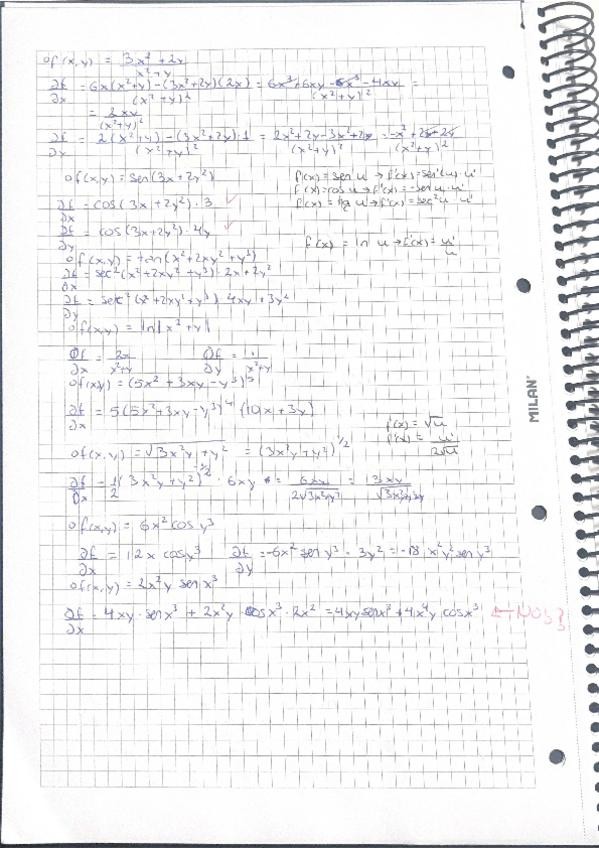 o f(x,y) = 3x² + 2y / x² + y
∂f/∂x = 6x(x²+y) - (3x²+2y)(2x) / (x²+y)² = 6x³ + 6xy - 6x³ - 4xy / (x²+y)² =
= 2xy / (x²+y)²
∂f/∂x = 2(x²+y) - (3x²+2y)·1 / (x²+y)² = 2x²+2y-3x²+2y / (x²+y)² = -x²+2y+2y / (x²+y)²
o f(x,y) = sen(3x+2y²)
f(x) = sen u → f'(x) = sen'(u)·u'
f(x) = cos u → f'(x) = -sen u·u'
∂f/∂x = cos(3x+2y²)·3 ✓
f(x) = tg u → f'(x) = sec² u · u'
∂f/∂y = cos(3x+2y²)·4y ✓
f(x) = ln u → f'(x) = u'/u
o f(x,y) = tan(x²+2xy²+y³)
∂f/∂x = sec²(x²+2xy²+y³)·2x+2y²
∂f/∂y = sec²(x²+2xy²+y³)·4xy+3y²
o f(x,y) = ln|x²+y|
∂f/∂x = 2x / x²+y ∂f/∂y = 1 / x²+y
o f(x,y) = (5x²+3xy-y³)⁵
∂f/∂x = 5(5x²+3xy-y³)⁴·(10x+3y)
f(x) = √u
f'(x) = u' / 2√u
o f(x,y) = √3x²y+y² = (3x²y+y²)^1/2
∂f/∂x = 1/2 (3x²y+y²)^-1/2 · 6xy = 6xy / 2√3x²y+y² = 3xy / √3x²y+y²
o f(x,y) = 6x² cos y³
∂f/∂x = 12x cos y³ ∂f/∂y = -6x² sen y³ · 3y² = -18 x²y² sen y³
o f(x,y) = 2x²y sen x³
∂f/∂x = 4xy · sen x³ + 2x²y · cos x³ · 2x² = 4xy sen x³ + 4x⁴y cos x³ ←
MILAN